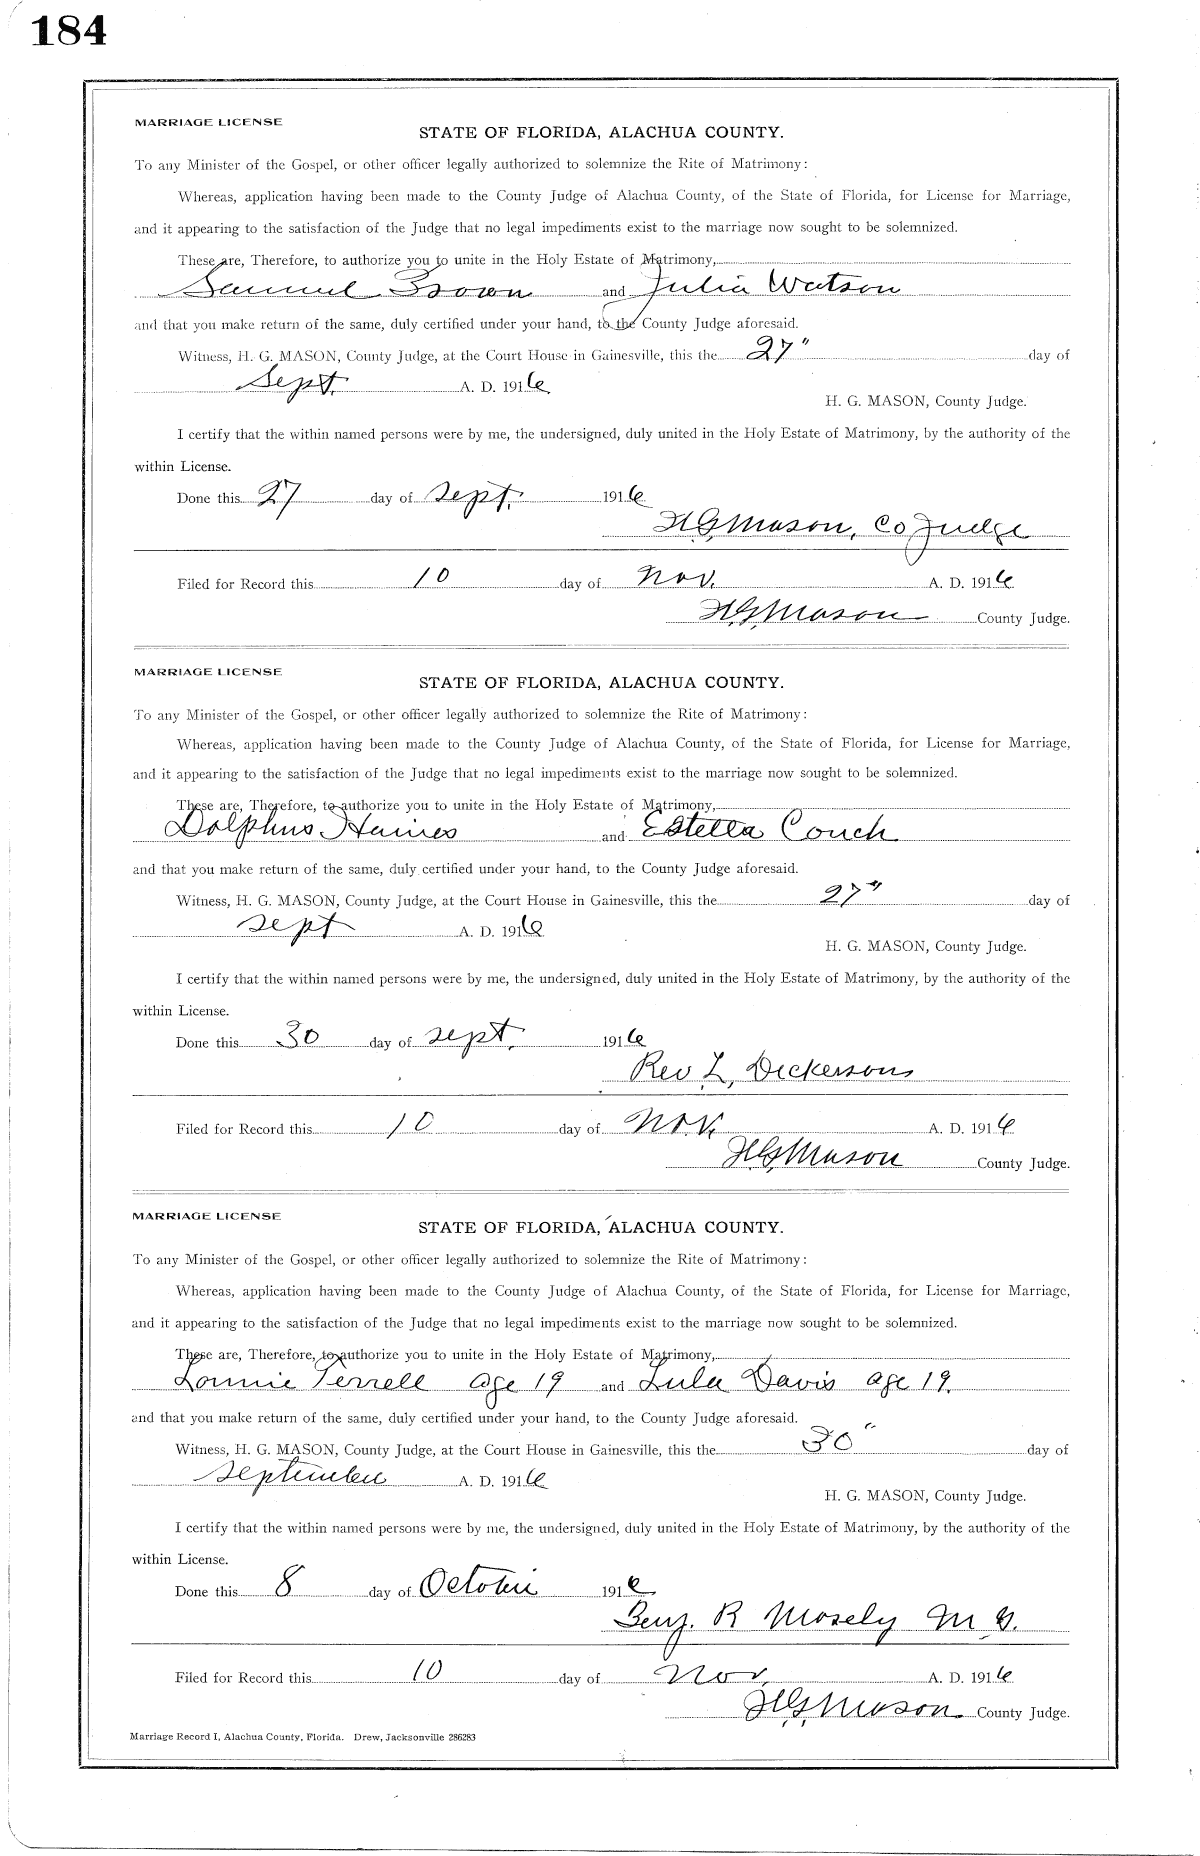 184
MARRIAGE LICENSE
STATE OF FLORIDA, ALACHUA COUNTY.
To any Minister of the Gospel, or other officer legally authorized to solemnize the Rite of Matrimony:
Whereas, application having been made to the County Judge of Alachua County, of the State of Florida, for License for Marriage,
and it appearing to the satisfaction of the Judge that no legal impediments exist to the marriage now sought to be solemnized.
These are, Therefore, to authorize you to unite in the Holy Estate of Matrimony,
Samuel Brown and Julia Watson
and that you make return of the same, duly certified under your hand, to the County Judge aforesaid.
Witness, H. G. MASON, County Judge, at the Court House in Gainesville, this the 27" day of
Sept. A. D. 1916
H. G. MASON, County Judge.
I certify that the within named persons were by me, the undersigned, duly united in the Holy Estate of Matrimony, by the authority of the
within License.
Done this 27 day of Sept. 1916
H.G. Mason, Co Judge
Filed for Record this 10 day of Nov. A. D. 1916
H.G. Mason County Judge.
MARRIAGE LICENSE
STATE OF FLORIDA, ALACHUA COUNTY.
To any Minister of the Gospel, or other officer legally authorized to solemnize the Rite of Matrimony:
Whereas, application having been made to the County Judge of Alachua County, of the State of Florida, for License for Marriage,
and it appearing to the satisfaction of the Judge that no legal impediments exist to the marriage now sought to be solemnized.
These are, Therefore, to authorize you to unite in the Holy Estate of Matrimony,
Dolphus Haines and Estella Couch
and that you make return of the same, duly certified under your hand, to the County Judge aforesaid.
Witness, H. G. MASON, County Judge, at the Court House in Gainesville, this the 27" day of
Sept A. D. 1916
H. G. MASON, County Judge.
I certify that the within named persons were by me, the undersigned, duly united in the Holy Estate of Matrimony, by the authority of the
within License.
Done this 30 day of Sept. 1916
Rev L. Dickerson
Filed for Record this 10 day of Nov. A. D. 1916
H.G. Mason County Judge.
MARRIAGE LICENSE
STATE OF FLORIDA, ALACHUA COUNTY.
To any Minister of the Gospel, or other officer legally authorized to solemnize the Rite of Matrimony:
Whereas, application having been made to the County Judge of Alachua County, of the State of Florida, for License for Marriage,
and it appearing to the satisfaction of the Judge that no legal impediments exist to the marriage now sought to be solemnized.
These are, Therefore, to authorize you to unite in the Holy Estate of Matrimony,
Lonnie Terrell age 19 and Lula Davis age 19.
and that you make return of the same, duly certified under your hand, to the County Judge aforesaid.
Witness, H. G. MASON, County Judge, at the Court House in Gainesville, this the 30" day of
September A. D. 1916
H. G. MASON, County Judge.
I certify that the within named persons were by me, the undersigned, duly united in the Holy Estate of Matrimony, by the authority of the
within License.
Done this 8 day of October 1916
Benj. R Mosely M. G.
Filed for Record this 10 day of Nov. A. D. 1916
H.G. Mason. County Judge.
Marriage Record I, Alachua County, Florida. Drew, Jacksonville 286283